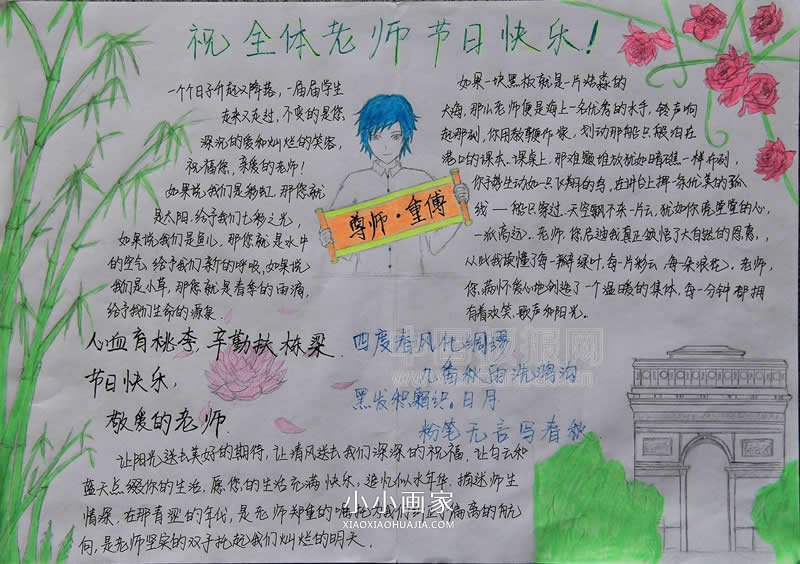 祝全体老师节日快乐!
一个个日子升起又降落,一届届学生
走来又走过,不变的是您
深沉的爱和灿烂的笑容,
祝福您,亲爱的老师!
如果说我们是彩虹,那您就
是太阳,给予我们七彩之光,
如果说我们是鱼儿,那您就是水中
的空气,给予我们新的呼吸,如果说
我们是小草,那您就是春季的雨滴,
给予我们生命的源泉.
如果一块黑板就是一片浩淼的
大海,那么老师便是海上一名优秀的水手,铃声响
起那刻,你用教鞭作桨,划动那船只般泊在
港口的课本.课桌上,那难题堆放犹如暗礁一样
你手势生动如一只飞翔的鸟,在讲台上挥一条优美的弧
线——船只穿过,天空飘不来一片云,犹如你亮堂堂的心,
一派高远.老师,您启迪我真正领悟了大自然的恩惠,
从此我读懂了每一瓣绿叶,每一片彩云,每一朵浪花.老师,
您满怀爱心地创造了一个温暖的集体,每一分钟都拥
有着欢笑、歌声和阳光。
尊师·重傅
心血育桃李,辛勤扶栋梁.
节日快乐,
敬爱的老师.
四度春风化绸缪
九番秋雨洗鸿沟
黑发积霜织日月
粉笔无言写春秋.
让阳光送去美好的期待,让清风送去我们深深的祝福,让白云和
蓝天点缀你的生活,愿您的生活充满快乐,追忆似水年华,描述师生
情深,在那青涩的年代,是老师郑重的嘱托为我们纠正了偏离的航
向,是老师坚实的双手托起我们灿烂的明天.
小小画家
XIAOXIAOHUAJIA.COM